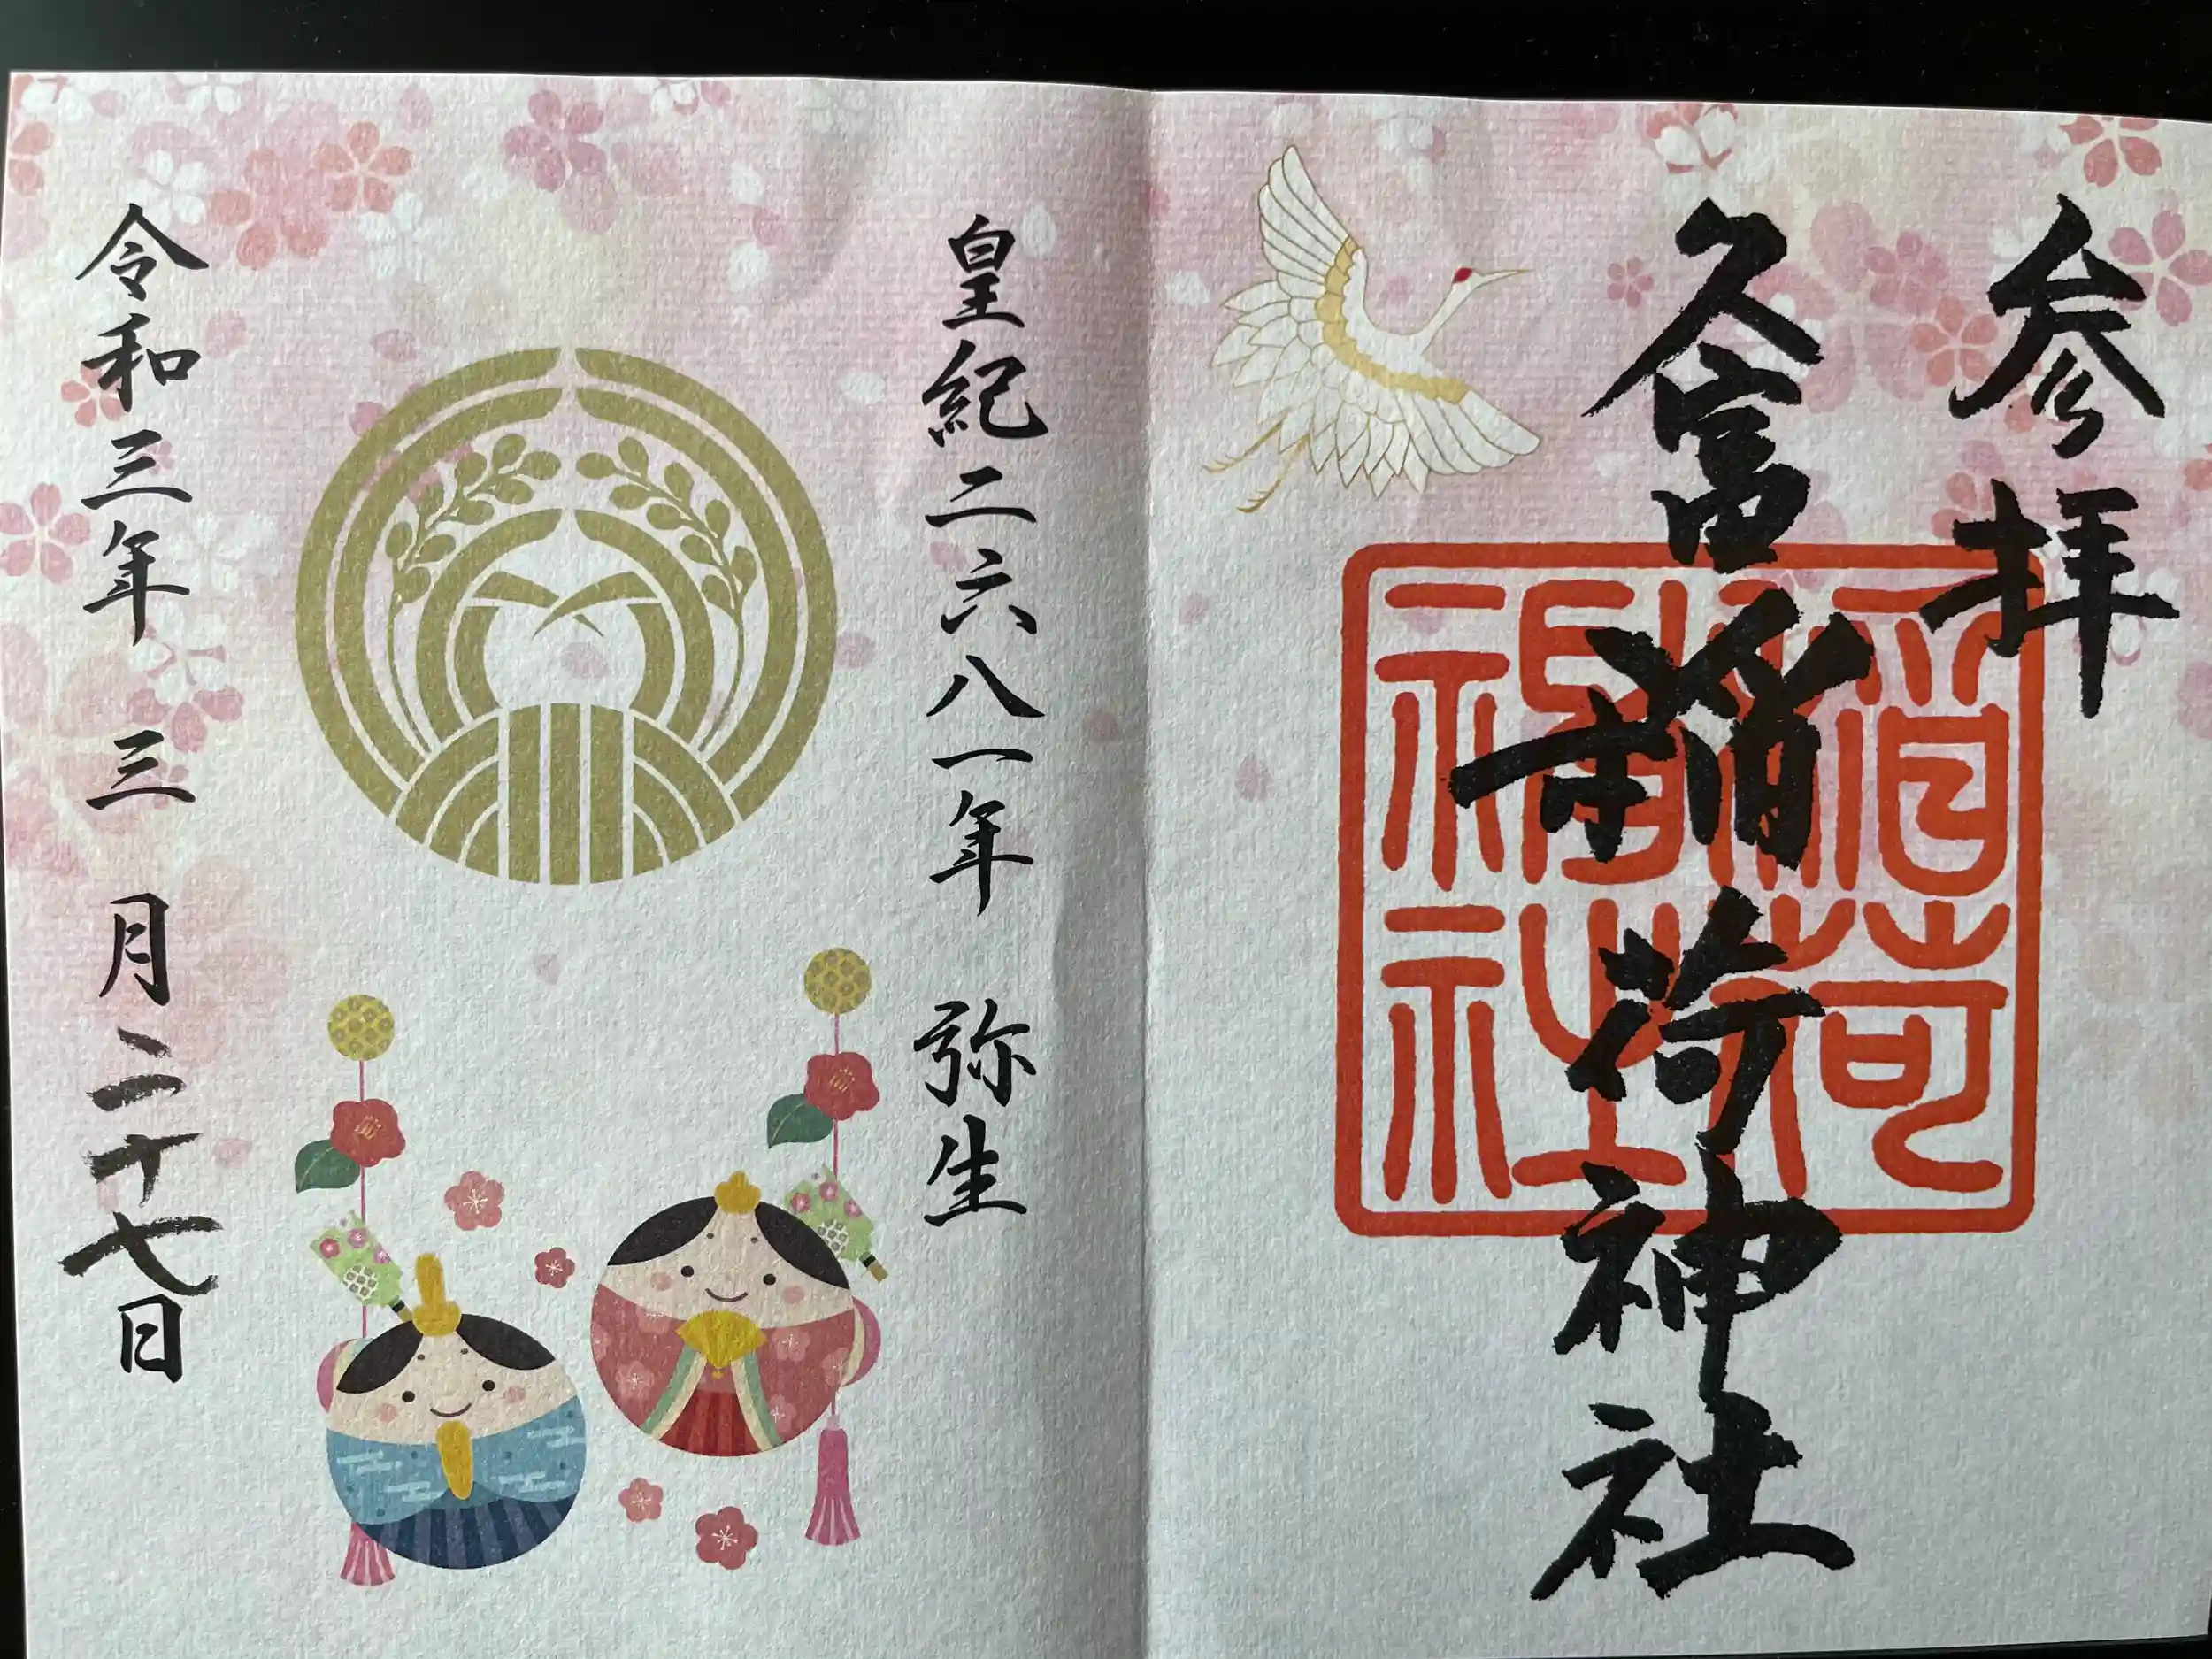 参拝
久富稲荷神社
皇紀二六八一年 弥生
令和三年 三 月二十七日